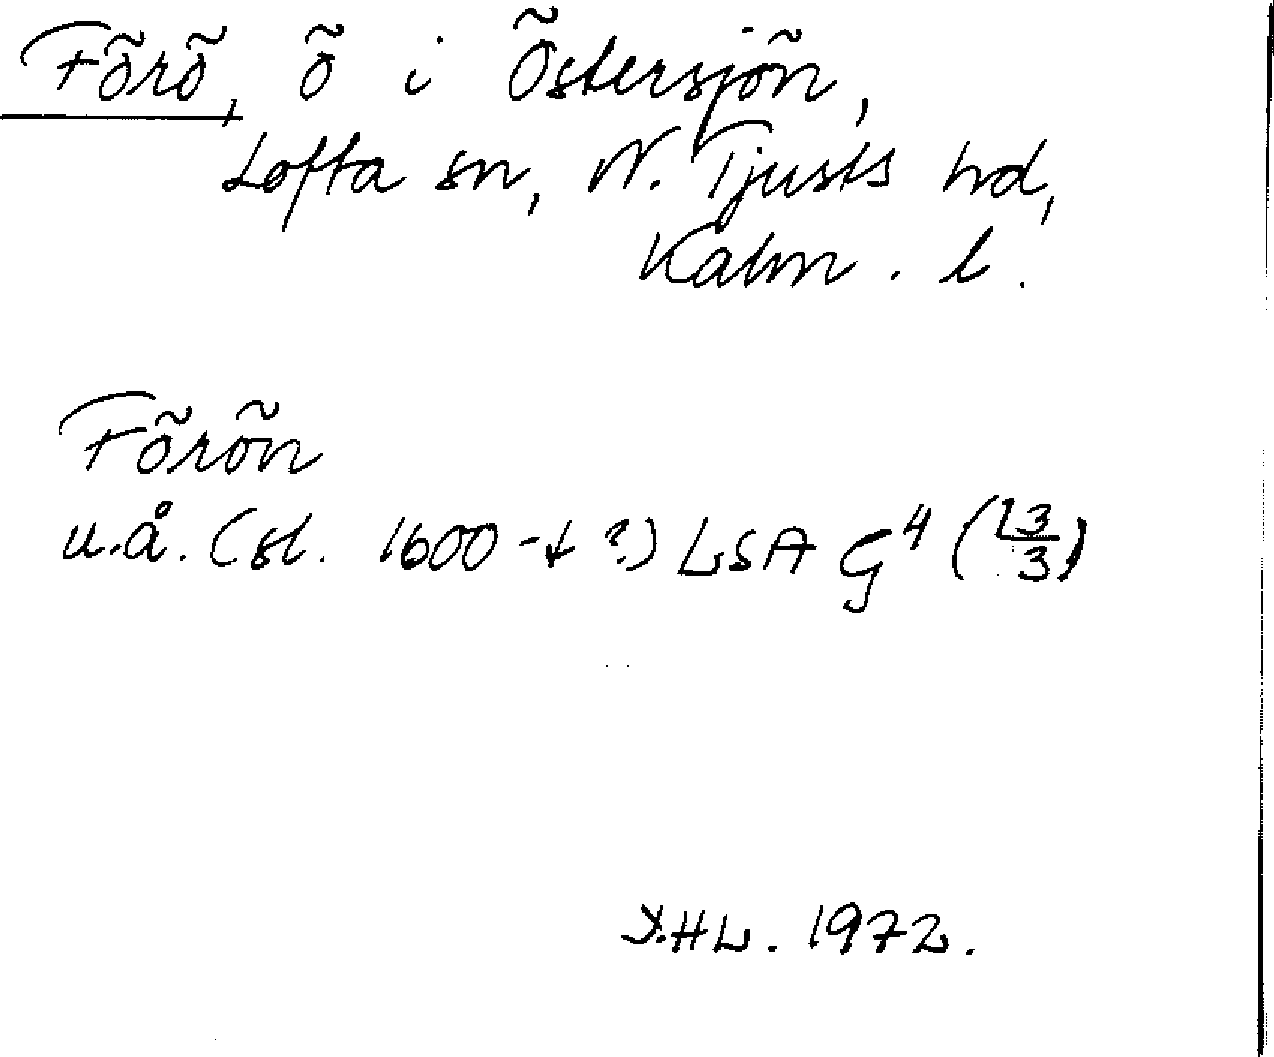 Förö, ö i Östersjön,
Lofta sn, N. Tjusts hd,
Kalm. l.
Förön
u.å. (sl. 1600-t ?) LSA G4 (13/3)
Y.HL. 1972.